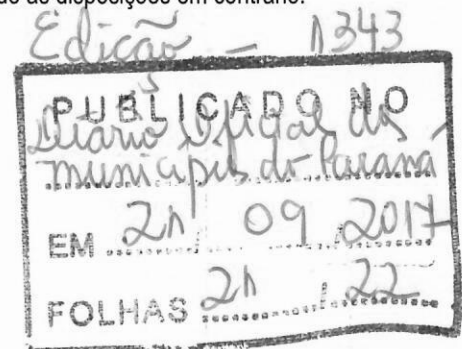 do as disposições em contrário.
Edição - 1343
PUBLICADO NO
Diário Oficial dos
municípios do Paraná
EM 21 / 09 / 2017
FOLHAS 21 / 22